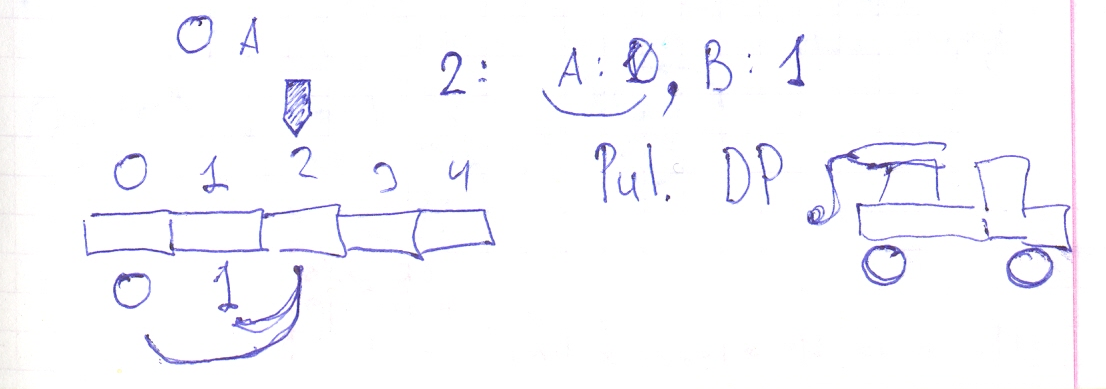 0 A
2: A: 0, B: 1
0 1 2 3 4
Pul. DP
0 1